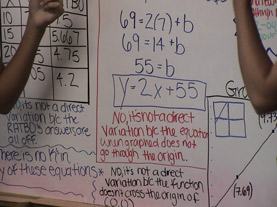 180
15 5.667
20 4.75
4.2
No, its not a direct
variation b/c the
RATIOS answers are
all off.
There is no K in
y of these equations*
69=2(7)+b
69=14+b
55=b
y=2x+55
No, its not a direct
Variation b/c the equation
when graphed does not
go through the origin.
No, it's not a direct
variation b/c the function
doesn't cross the origin of
Gr
(7,69)